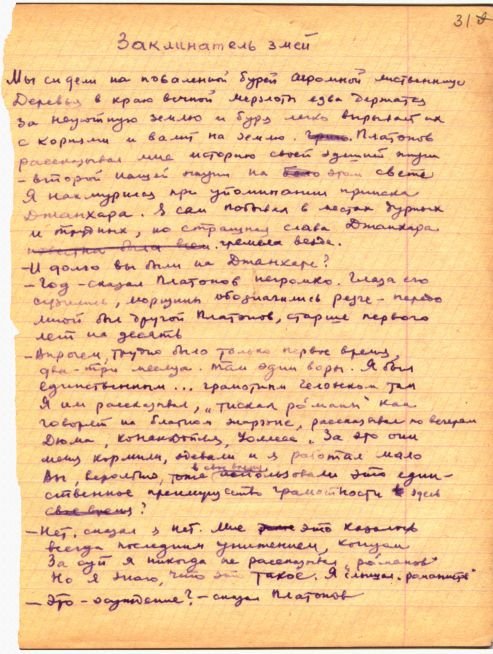 31
Заклинатель змей
Мы сидели на поваленной бурей огромной лиственнице
Деревья в краю вечной мерзлоты едва держатся
за неуютную землю и буря легко вырывает их
с корнями и валит на землю. Платонов
рассказывал мне историю своей здешней жизни
– второй нашей жизни на этом свете
Я нахмурился при упоминании прииска
Джанхара. Я сам побывал в местах дурных
и трудных, но страшная слава Джанхара
гремела везде.
– И долго вы были на Джанхаре?
– Год – сказал Платонов негромко. Глаза его
сузились, морщины обозначились резче – передо
мной был другой Платонов, старше первого
лет на десять
– Впрочем, трудно было только первое время,
два-три месяца. Там одни воры. Я был
единственным... грамотным человеком там
Я им рассказывал, „тискал рóманы" как
говорят на блатном жаргоне, рассказывал по вечерам
Дюма, Конан Дойля, Уоллеса. За это они
меня кормили, одевали и я работал мало
Вы, вероятно, тоже в свое время использовали это един-
ственное преимущество грамотности здесь
?
– Нет, сказал я нет. Мне это казалось
всегда последним унижением, концом
За суп я никогда не рассказывал „романов"
Но я знаю, что это такое. Я слышал „романистов"
– Это – осуждение? – сказал Платонов